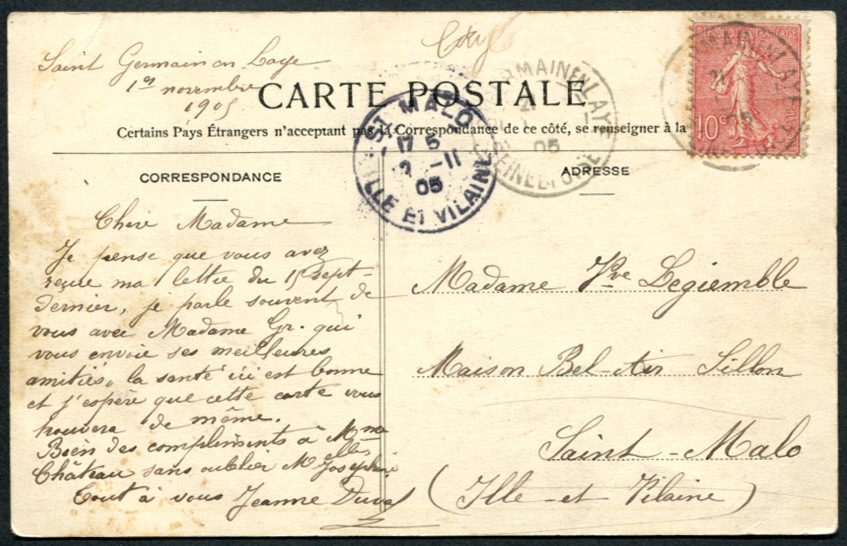 Saint Germain en Laye
1er novembre
1905
CARTE POSTALE
Certains Pays Étrangers n'acceptant pas la Correspondance de ce côté, se renseigner à la
CORRESPONDANCE
Chère Madame
Je pense que vous avez
reçue ma lettre du 15 Sept-
dernier, je parle souvent de
vous avec Madame Gr. qui
vous envoie ses meilleures
amitiés, la santé ici est bonne
et j'espère que cette carte vous
trouvera de même.
Bien des compliments à Mme
Château sans oublier Melle Joséphine
Tout à vous Jeanne Duval
ADRESSE
Madame Vve Legiemble
Maison Bel-Air Sillon
Saint-Malo
(Ille-et-Vilaine)
ST MALO
17 5
2 -11
05
ILLE ET VILAINE
ST GERMAIN EN LAYE
05
SEINE ET OISE
REPUBLIQUE FRANÇAISE
10c